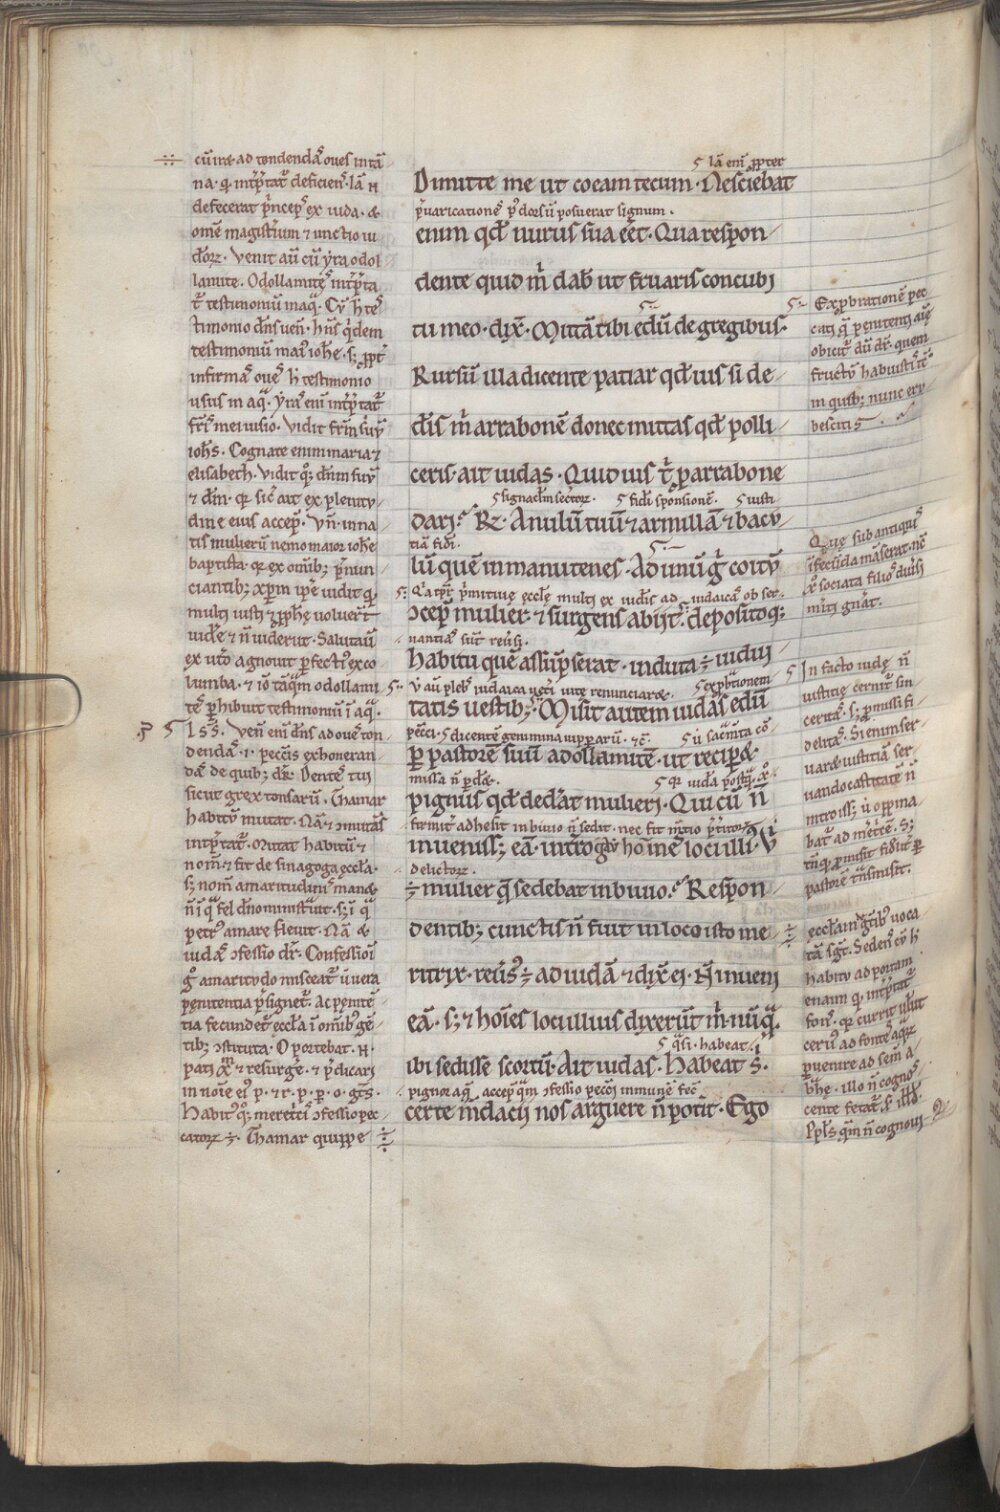 cū iret ad tondendas oues in tā
na· q̄ int̄p̄tat̄ deficiens· Iā n̄
defecerat p̄nceps ex iuda· &
omē magist̄ium ⁊ unctio iu
deoꝝ· Venit aū cū yra odol
lamite· Odollamites int̄p̄ta
t̄ testimoniū in aq̄· Cū h̄ tes
timonio dn̄s uenit· hn̄s q̄dem
testimoniū mai᷒ ioh̄e· sꝫ ꝓpt̄
infirmas oues h̄ testimonio
usus in aq̄· yras enim int̄p̄tat̄
fr̄is mei uisio· Vidit fr̄m suū
ioh̄s· Cognate enim maria ⁊
elisabeth· Vidit qꝫ dn̄m suū
⁊ dm̄· q̄ sic̄ ait ex plenitu
dine eius accep̄· Vn̄· in na
tis mulierū nemo maior ioh̄e
baptista· q̄ ex om̄ibꝫ p̄nun
ciantibꝫ xp̄m ip̄e uidit q̄
multi iusti ⁊ ꝓph̄e voluer̄t
uid̄e ⁊ n̄ uiderūt· Salutatū
ex ut̄o agnouit ꝑfect᷒ ex co
lumba· ⁊ iō tāq̄m odollami
tes ꝑhibuit testimoniū ī aq̄·
Is̄s· Venit eni dn̄s ad oues ton
dendas· ·i· pecc̄is exhoneran
das de quibꝫ dr̄· Dentes tui
sicut grex tonsarū· Thamar
habitū mutat· Nā ⁊ ɔmutans
int̄p̄tat̄· Mutat habitū ⁊
nom̄ ⁊ fit de sinagoga eccl̄a·
sꝫ nom̄ amaritudinis manet
n̄ ī q̄ fel dn̄o ministrauit· sꝫ ī q̄
petr᷒ amare fleuit· Nā &
iudas ɔfessio dr̄· Confessioni
g̊ amaritudo misceat̄ ut uera
penitentia p̄signet̄· Ac penitē
tia fecundet̄ eccl̄a ī om̄ibꝫ gē
tibꝫ ɔstituta· Oportebat· n̄·
pati xp̄m ⁊ resurḡe· ⁊ p̄dicari
in noīe ei᷒ p· & r· p· p· o· gtēs·
Habit᷒ qꝫ meretricis ɔfessio pec
catoꝝ ÷· Thamar quippe
Iā eni ꝓpter
Dimitte me ut coeam tecum· Nesciebat
p̄uaricationē p᷒ dorsū posuerat signum·
enim qd̄ nurus sua eēt· Qua respon
dente quid m̄ dab̄ ut fruaris concubi
tu meo· dix̄· Mittā tibi edū de gregibus·
Rursū illa dicente patiar qd̄ uis si de
deris m̄ arrabonē donec mittas qd̄ polli
ceris· ait iudas· Quid uis t̄ p arrabone
signaclm̄ secretoꝝ· fidei sponsionē· iusti
dari· Rꝫ· Anulū tuū ⁊ armillā ⁊ bacu
tiā fidei·
lū quē in manu tenes· Ad unū g̊ coitū
Qꝛ a tp̄r p̄mitiue eccl̄e multi ex iudeis ad iudaicas obser
ɔcep̄ mulier· ⁊ surgens abijt· depositoqꝫ
uantias sūt reūsi·
habitu quē assūpserat· induta ÷ uidui
Ul̄ aū plebs iudaica ueteri uite renunciaret· exp̄bationem
tatis uestibꝫ· Misit autem iudas edū
pecc̄i· dicentes genimina uiperarū· ⁊c̄· ut̄ sac̄mta cō
ꝑ pastorē suū adollamitē· ut recip̄et
missa n̄ p̄det·
pignus qd̄ ded̄at mulieri· Qui cū n̄
firmit̄ adhesit in biuio n̄ sedit·
inuenissꝫ eā· int̄rogau hoīnes loci illi᷒ V̇
delictoꝝ·
÷ mulier q̄ sedebat in biuio· Respon
dentibꝫ cunctis n̄ fuit in loco isto me
ritrix· reūs᷒ ÷ ad iudā ⁊ dix̄ ei· N̄ inueni
eā· sꝫ ⁊ hoīes loci illius dixerūt m̄· nūq̄
q̄si· habeat
ibi sedisse scortū· Ait iudas· Habeat s·
pignora q̄ accep̄ q̄m ɔfessio pecc̄i inmunē fec̄
certe mdacii nos arguere n̄ pot̄it· Ego
Exp̄brationē pec
cati q̄ penitenti aūs
obicit̄ dū dr̄· quem
fructū habuistis tc̄
in quibꝫ nunc eru
bescitis·
Que sub antiquis
ifecūda māserat· nc̄
xp̄o sociata filios diuisi
m̄iti gn̄at·
In facto iude n̄
iustitie cernit̄ sin
ceritas· sꝫ ꝓmissi fi
delitas· Si enim ser
uaret iustitiam ser
uando castitatē n̄
introissꝫ ut oppina
bat̄ ad met̄cē· Sꝫ
tn̄ q̄ ꝓmisit fidelit̄ ꝑ
pastorē tn̄smisit·
eccl̄am g̊ gt̄ibus uoca
tā sgt̄· Sedens cū h̄
habitu ad portam
enaim q̄ int̄p̄tat̄
fons· q̄ currit uelut
ceruus ad fontes aq̄ꝝ
ꝑuenire ad sem̄ a
br̄he· illo n̄ cognos
cente fetat̄·
Ppl̄s q̄m n̄ cognoui